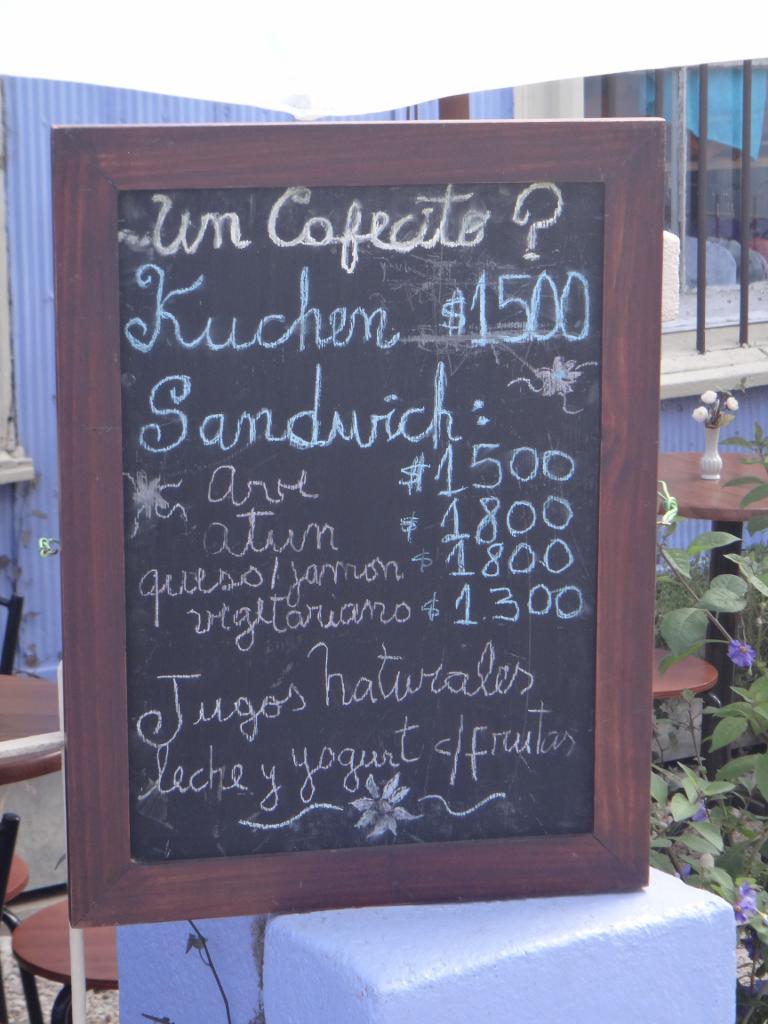 Un Cafecito ?
Kuchen $1500
Sandwich:
ave $1500
atun $1800
queso/jamon $1800
vegetariano $1.300
Jugos naturales
leche y yogurt c/frutas